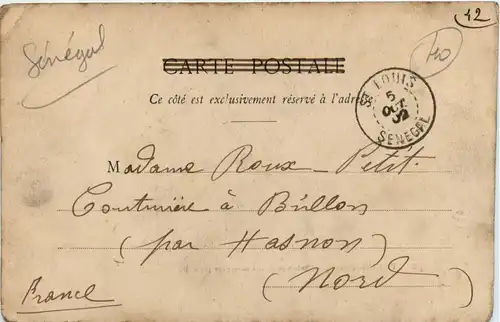 12
Sénégal
40
CARTE POSTALE
Ce côté est exclusivement réservé à l'adre
ST LOUIS
5
OCT
02
SENEGAL
Madame Roux - Petit
Couturière à Brillon
(par Hasnon)
(Nord)
France